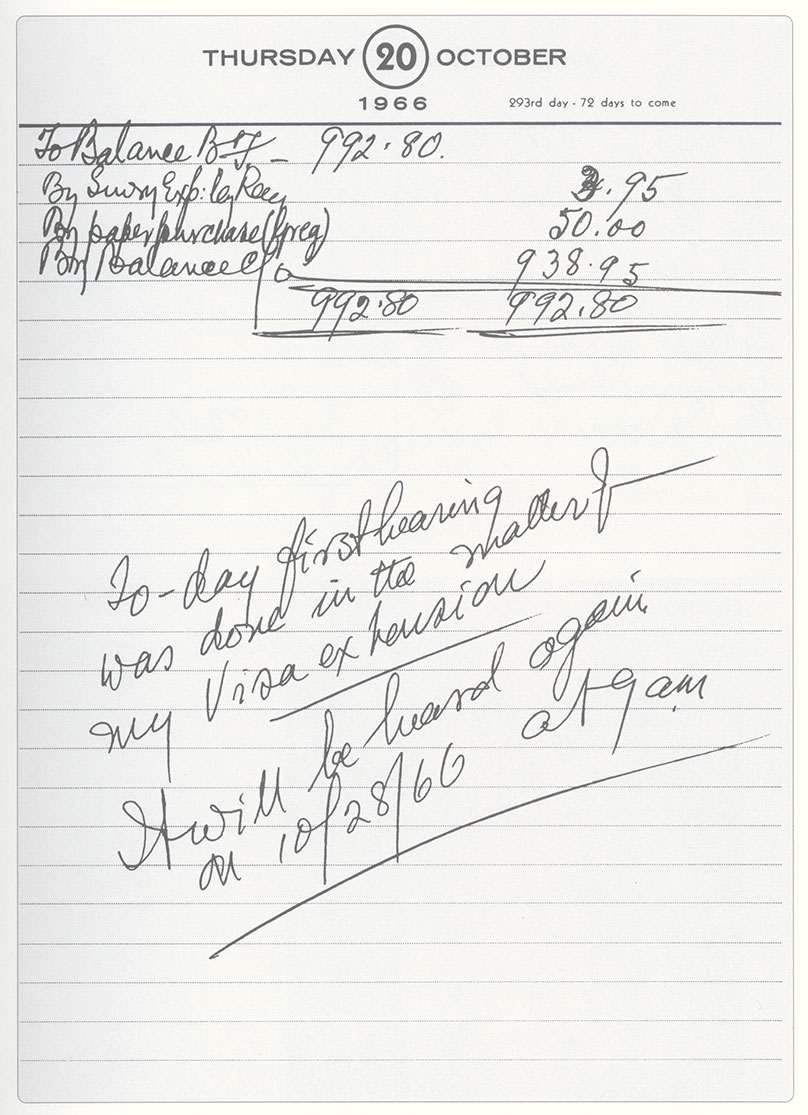 THURSDAY 20 OCTOBER
1966 293rd day - 72 days to come
To Balance B/F – 992.80.
By Sunry Exp: by Ray 3.95
By paper purchase 50.00
By Balance C/o 938.95
992.80 992.80
To-day first hearing
was done in the matter of
my Visa extension
It will be heard again
on 10/28/66 at 9 am